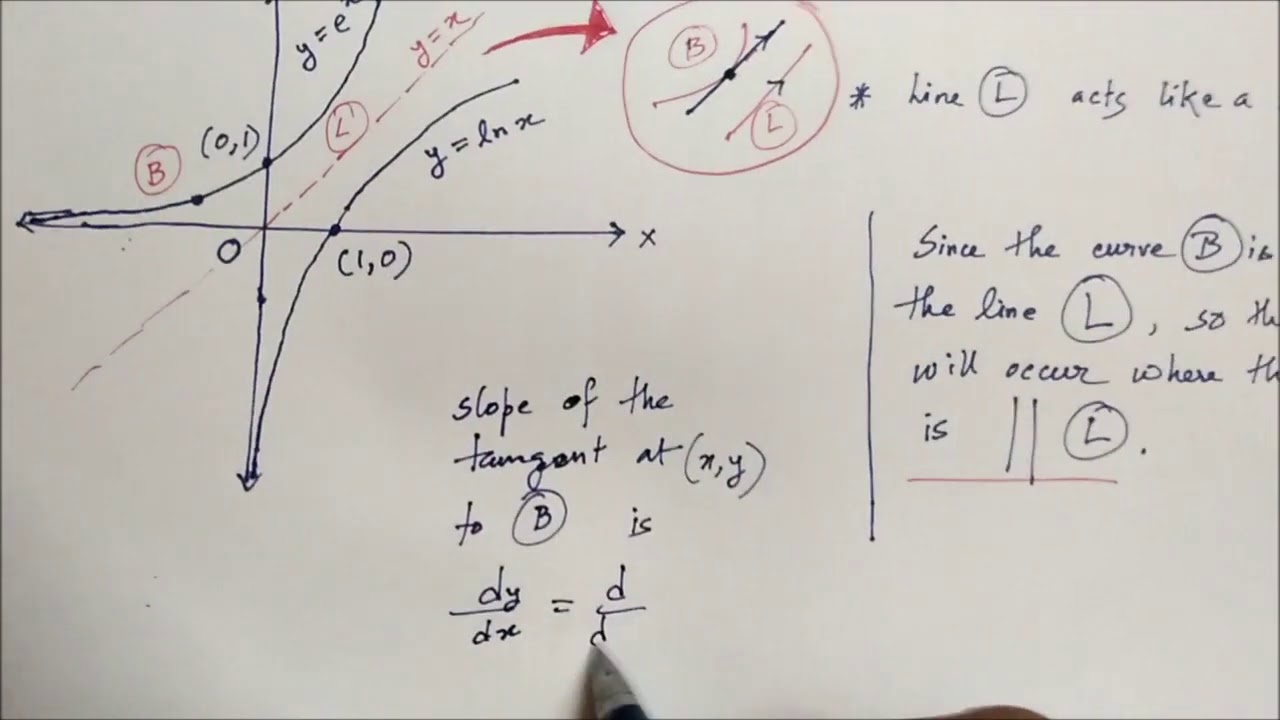 y = e^x
y = x
B
* Line L acts like a
L
(0,1)
L
y = ln x
B
O
x
(1,0)
Since the curve B is
the line L, so th
will occur where th
is || L.
slope of the
tangent at (x,y)
to B is
dy/dx = d/d